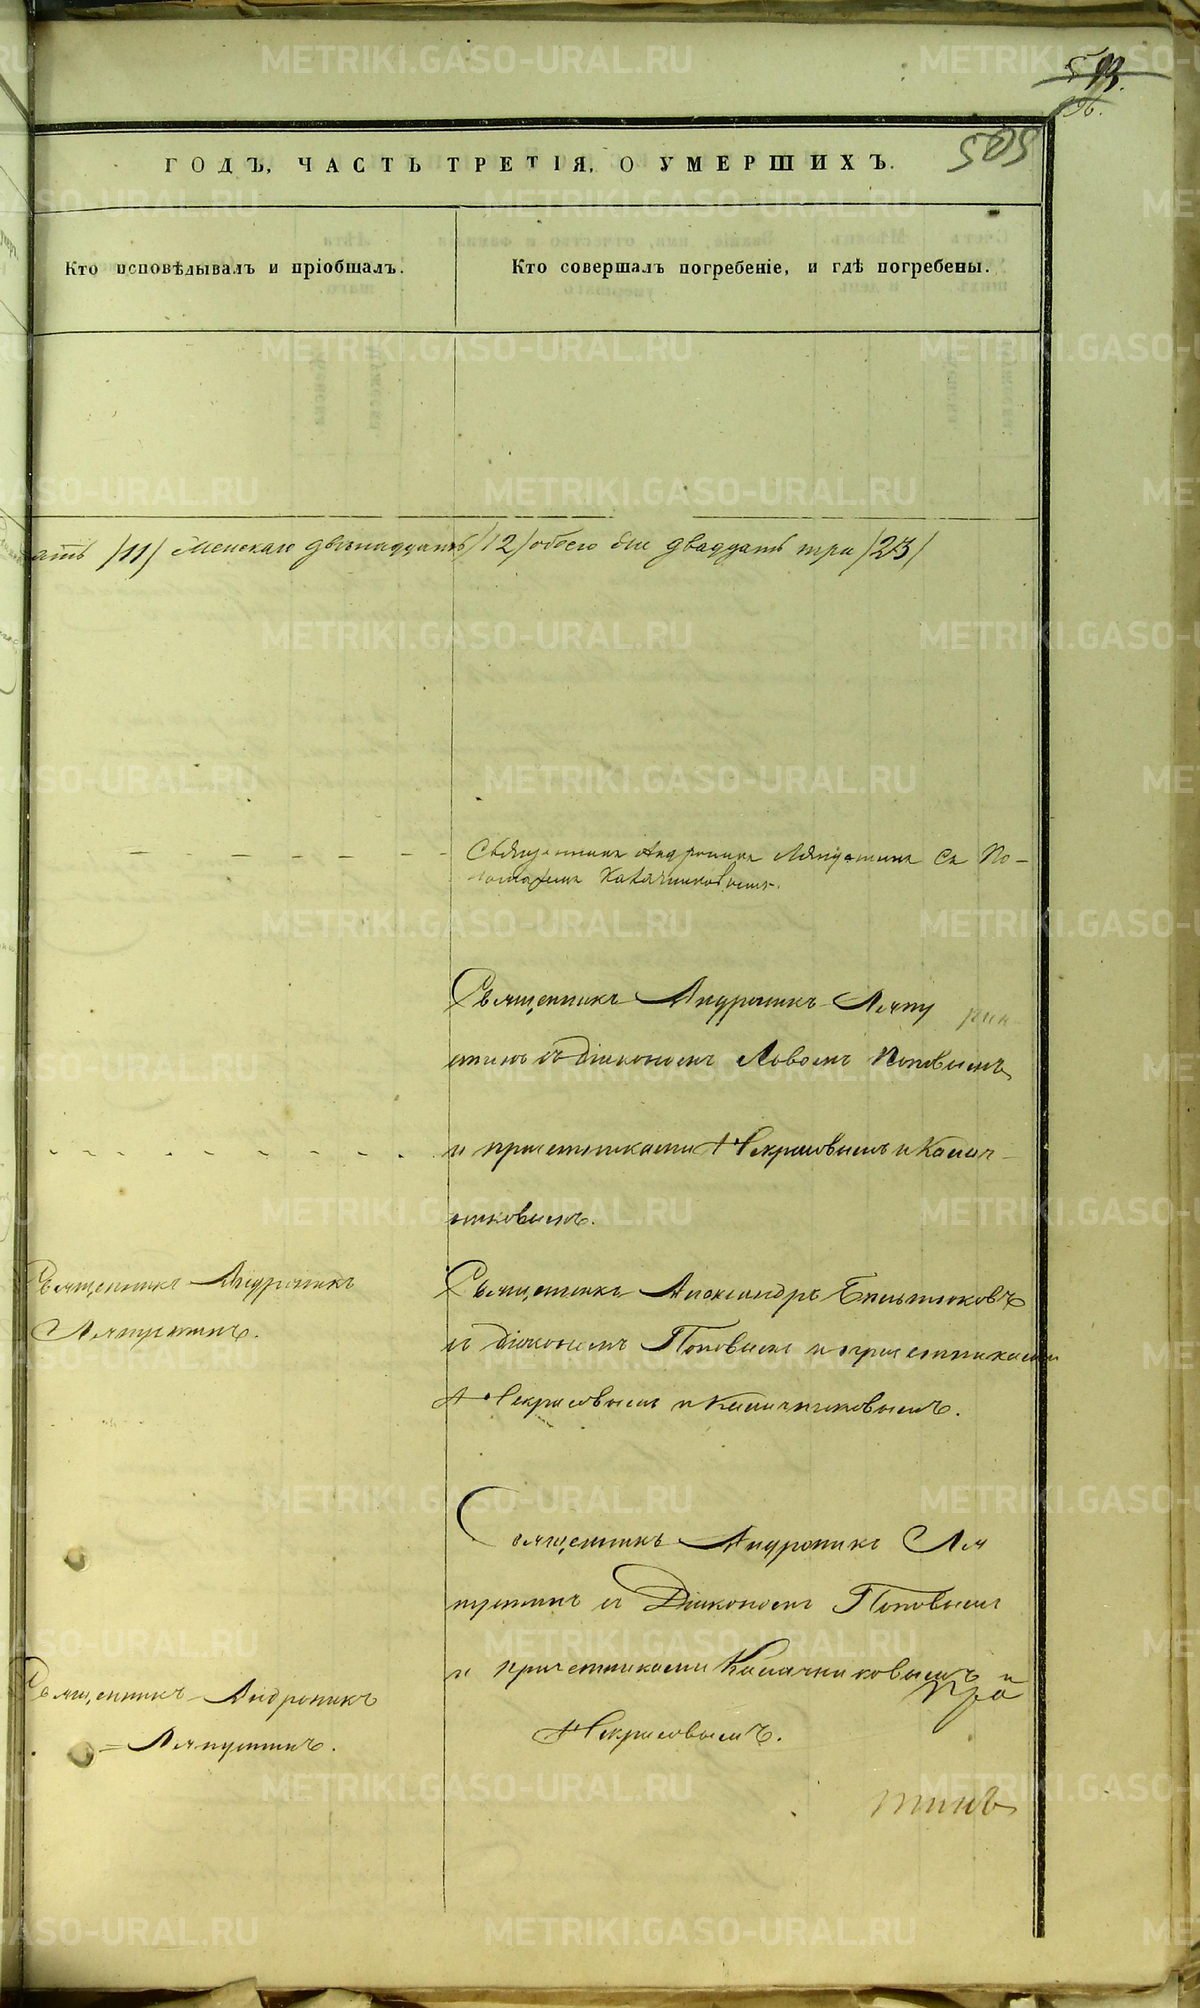 513.
196.
505
ГОДЪ, ЧАСТЬ ТРЕТІЯ, О УМЕРШИХЪ.
Кто исповѣдывалъ и пріобщалъ.
Кто совершалъ погребеніе, и гдѣ погребены.
ать /11/ женскаго двѣнадцать /12/ обоего двадцать три /23/
Священникъ Андроникъ Ляпустинъ съ По-
номаремъ Калачниковымъ.
Священникъ Андроникъ Ляпу
стинъ съ Діакономъ Попо­вымъ
и причетниками Некрасовымъ и Калач-
никовымъ.
Священникъ Андроникъ
Ляпустинъ.
Священникъ Александръ
съ Діакономъ Поповымъ и причетниками
Некрасовымъ и Калачниковымъ.
Священникъ Андроникъ Ля
пустинъ съ Діакономъ Поповымъ
и причетниками Калачниковымъ и
Некрасовымъ.
Священникъ Андроникъ
= Ляпустинъ.
тинъ
METRIKI.GASO-URAL.RU